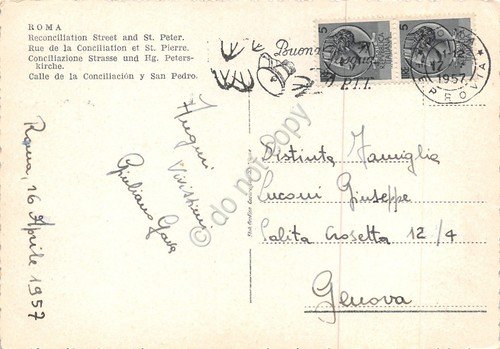 ROMA
Reconciliation Street and St. Peter.
Rue de la Conciliation et St. Pierre.
Conciliazione Strasse und Hg. Peters-
kirche.
Calle de la Conciliación y San Pedro.
Buona
P.T.T.
5
5
12
1957
Auguri
Vivissimi
Giuliano Gava
Roma, 16 Aprile 1957
Distinta Famiglia
Luconi Giuseppe
Salita Crosetta 12/4
Genova
do not copy